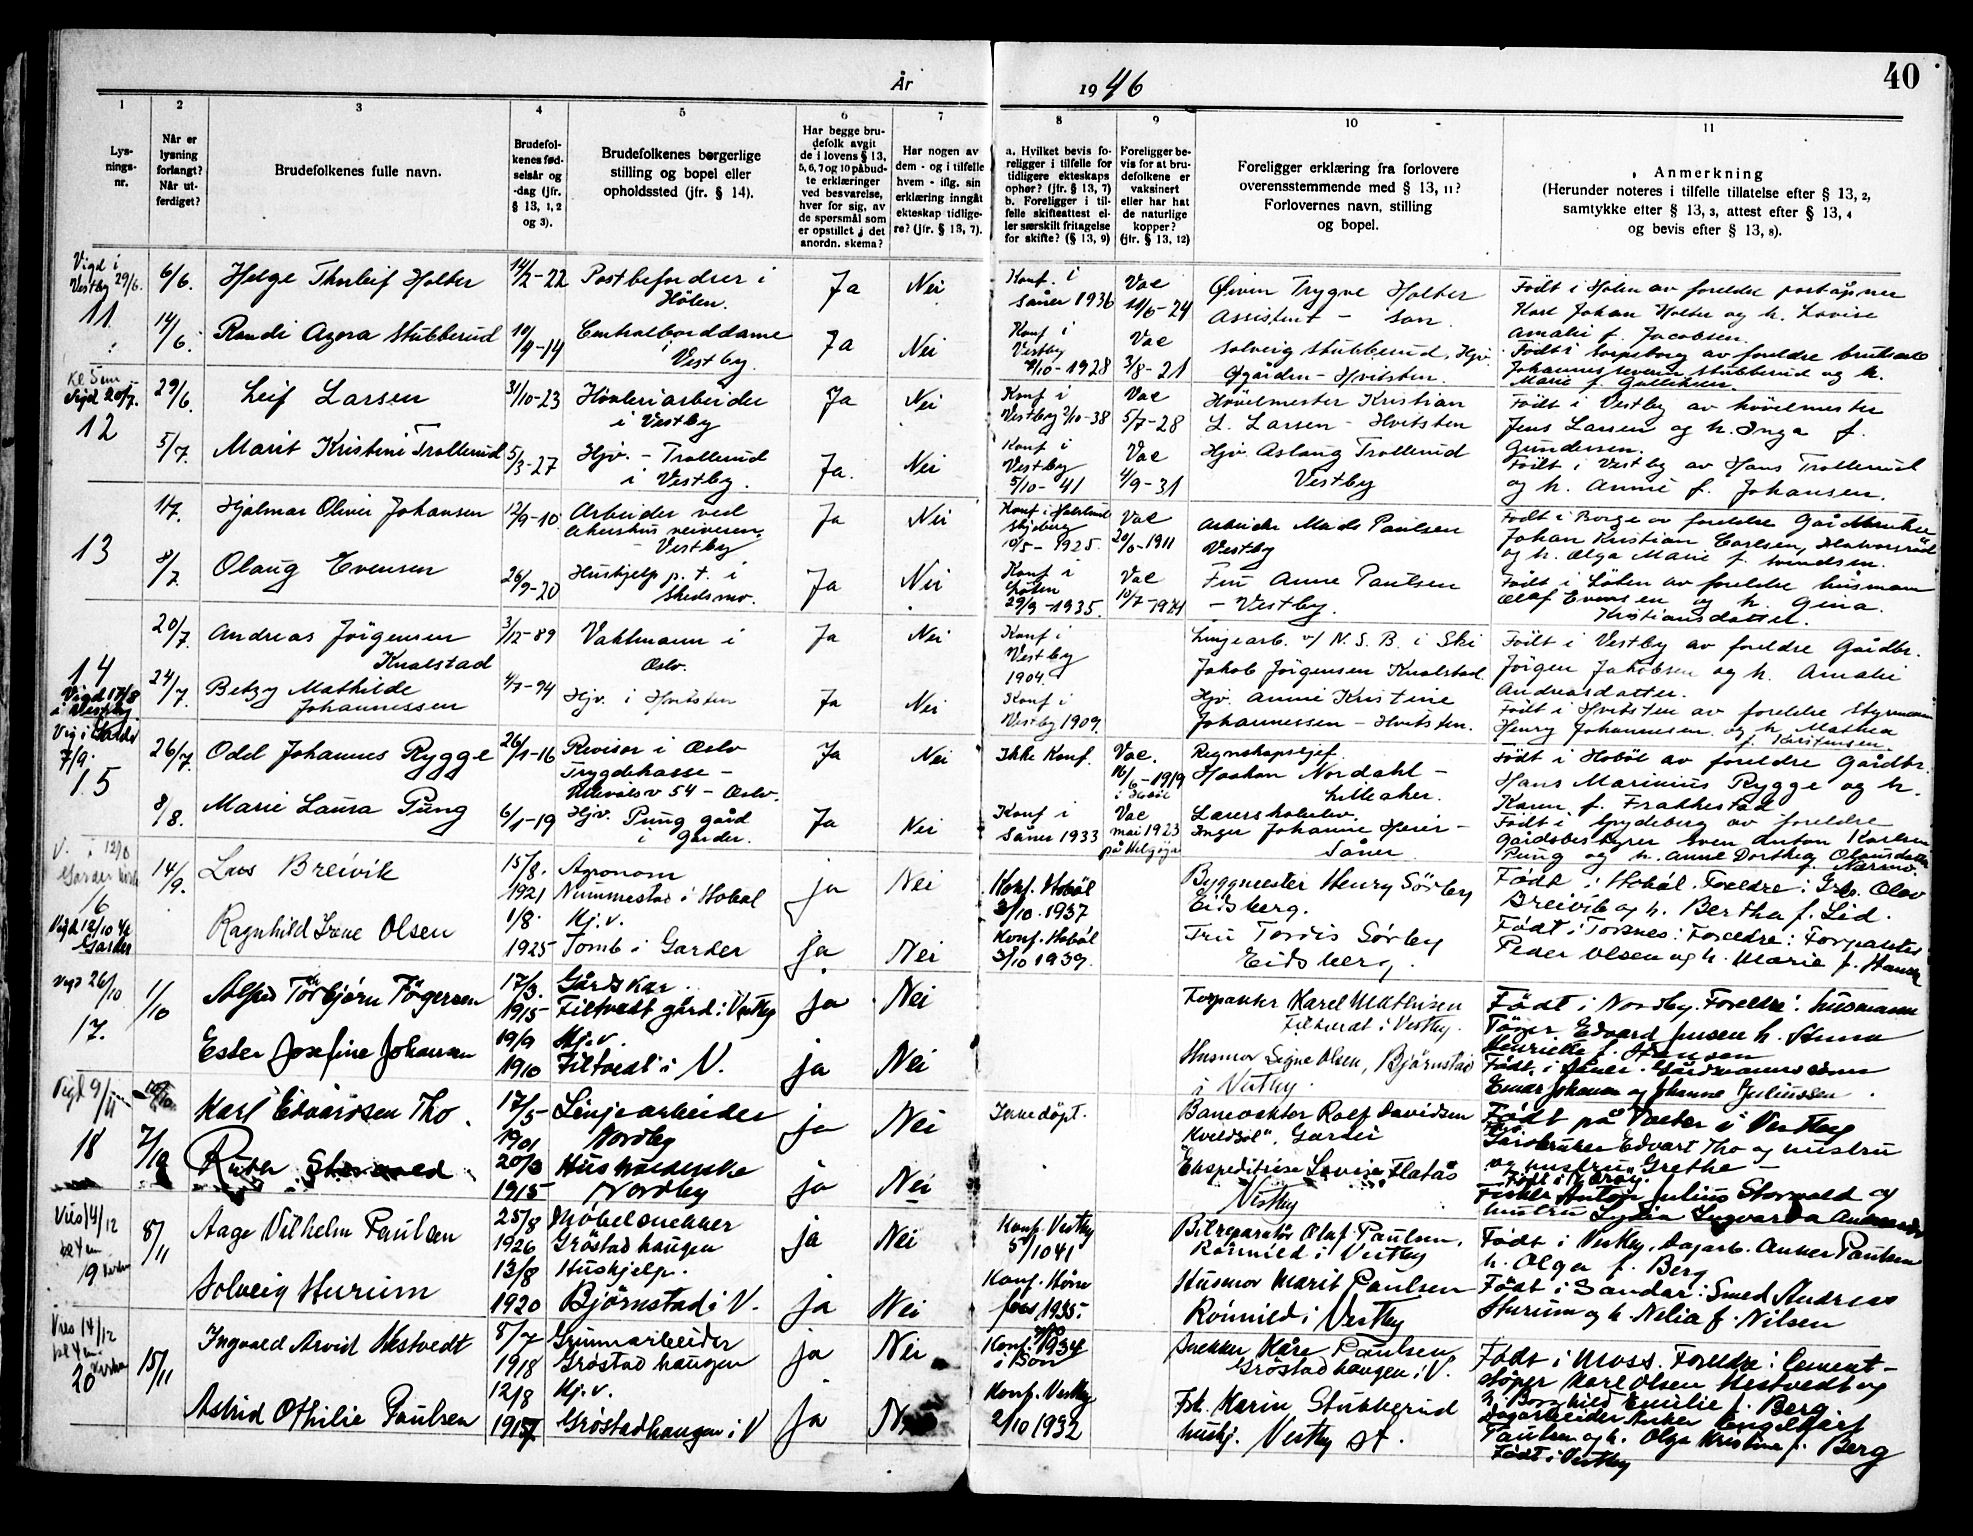 År 1946
40
1
2
3
4
5
6
7
8
9
10
11
Lys-
nings-
nr.
Når er
lysning
forlangt?
Når ut-
ferdiget?
Brudefolkenes fulle navn.
Brudefol-
kenes fød-
selsår og
-dag (jfr.
§ 13, 1, 2
og 3).
Brudefolkenes borgerlige
stilling og bopel eller
opholdssted (jfr. § 14).
Har begge bru-
defolk avgit
de i lovens § 13,
5, 6, 7 og 10 påbud-
te erklæringer
ved besvarelse,
hver for sig, av
de spørsmål som
er opstillet i det
anordn. skema?
Har nogen av
dem - og i tilfelle
hvem - iflg. sin
erklæring inngått
ekteskap tidlige-
re? (jfr. § 13, 7).
a. Hvilket bevis fo-
religger i tilfelle for
tidligere ekteskaps
ophør? (jfr. § 13, 7)
b. Foreligger i til-
felle skifteattest el-
ler særskilt fritagelse
for skifte? (§ 13, 9)
Foreligger be-
vis for at bru-
defolkene er
vaksinert
eller har hat
de naturlige
kopper?
(jfr. § 13, 12)
Foreligger erklæring fra forlovere
overensstemmende med § 13, 11?
Forlovernes navn, stilling
og bopel.
Anmerkning
(Herunder noteres i tilfelle tillatelse efter § 13, 2,
samtykke efter § 13, 3, attest efter § 13, 4
og bevis efter § 13, 8).
Vigd i
Vestby 29/6.
11
6/6.
Helge Thorleif Holter
14/2-22
Postbefordrer i
Hölen.
Ja
Nei
Konf. i
Såner 1936
Vac
11/6-24
Öivin Trygve Holter
Assistent - Son.
Födt i Hölen av foreldre poståpner
Karl Johan Holter og h. Lovise
Amalie f. Jacobsen.
14/6.
Randi Agora Stubberud
10/9-14
Centralborddame
i
Vestby.
Ja
Nei
Konf i
Vestby
7/10-1928
Vac
3/8-21
Solveig Stubberud, Hjv.
Øgården - Hvitsten.
Födt i Sarpsborg av foreldre
Johannes Stubberud og h.
Marie f.
Kl. 5 em
Vigd 20/7.
12
29/6.
Leif Larsen
31/10-23
Hövleriarbeider
i Vestby
Ja
Nei
Konf i
Vestby 2/10-38
Vac
5/7-28
Hövelmester Kristian
L. Larsen - Hvitsten
Födt i Vestby av hövelmester
Jens Larsen og h. Inga f.
Gundersen.
5/7.
Marit Kristine Trollerud
5/3-27
Hjv. - Trollerud
i Vestby.
Ja.
Nei
Konf i
Vestby
5/10-41
Vac
4/9-31
Hjv. Aslaug Trollerud
Vestby
Födt i Vestby av Hans Trollerud
og h. Anne f. Johansen.
13
1/7.
Hjalmar Oliver Johansen
12/9-10
Arbeider ved
Akershus veivesen.
- Vestby
Ja
Nei
Skjeberg
10/5-1925.
Vac
Arbeider Mads Paulsen
Vestby
Födt i Borge av foreldre Gårdbruker
Johan Kristian Carlsen,
og h. Olga Marie f. Svendsen.
8/7.
Olaug Evensen
26/9-20
Hushjelp p.t. i
Skedsmo.
Ja
Nei
Konf i
Löten
29/9-1935.
Vac
Fru Anne Paulsen
- Vestby.
Födt i Löten av foreldre husmann
Olaf Evensen og h. Gina
Kristiansdatter.
14
Vigd 17/8
i Vestby
20/7.
Andreas Jörgensen
Knalstad
3/12-89
Vaktmann i
Oslo.
Ja
Nei
Konf i
Vestby
1904.
Linjearb. v/ N.S.B. i Ski
Jakob Jörgensen Knalstad.
Födt i Vestby av foreldre Gårdbr.
Jörgen Jakobsen og h. Amalie
Andreasdatter.
24/7.
Betzy Mathilde
Johannessen
4/7-94
Hjv. i Hvitsten
Ja
Nei
Konf i
Vestby 1909.
Hjv. Anne Kristine
Johannessen - Hvitsten.
Födt i Hvitsten av foreldre Styrmann
Henry Johannesen og h. Mathea
f. Karstensen.
Vig i Garder
7/9.
15
26/7.
Odd Johannes Rygge
26/1-16
Revisor i Oslo
Trygdekasse -
Ullevålsv 54 - Oslo.
Ja
Nei
Ikke Konf.
Vac.
16/6-1919
i Hobøl
Regnskapssjef
Haakon Nordahl -
Lilleaker.
Födt i Hobøl av foreldre Gårdbr.
Hans Marinius Rygge og h.
Karen f. Frakkestad
8/8.
Marie Laura Pung
6/1-19
Hjv. Pung gård
i Garder.
Ja
Nei
Konf i
Såner 1933
Vac
mai 1923
på Helgöya
Lærerskoleelev.
Inger Johanne Heier -
Såner
Födt i Spydeberg av foreldre
Gårdsbestyrer Sven Anton Karlsen
Pung og h. Anne Dorthea Olausdatter
16
Vigd 12/10 46
Garder
14/9.
Lars Breivik
15/8.
1921
Agronom
Nummestad i Hobøl
ja
Nei
Konf. Hobøl
3/10.1937
Byggmester Henry Sörby
Eidsberg.
Födt i Hobøl. Foreldre: Grb. Olav
Breivik og h. Bertha f. Lid.
Ragnhild Irene Olsen
1/8.
1925
Hj.v.
Tomb i Garder
ja
Nei
Konf. Hobøl
3/10 1939.
Fru Tordis Sörby
Eidsberg.
Födt i Torsnes: Foreldre: Forpakter
Peder Olsen og h. Marie f. Hansen
Vigd 26/10
17.
1/10
Alfred Torbjörn Tögersen
17/3.
1915
Gårdskar.
Filtvedt gård i Vestby
ja
Nei
Forpakter Karel Mathisen
Filtvedt i Vestby.
Födt i Nordby. Foreldre: husmann
Töger Edvard Jensen h. Anna
Henriette f. Hansen
Ester Josefine Johansen
19/9
1910
Hj.v.
Filtvedt i V.
ja
Nei
Husmor Signe Olsen, Björnstad
i Vestby.
Einar Johansen og Johanne Juliussen.
Vigd 9/11
18
7/10
Karl Edvardsen Tho.
17/5
1901
Linjearbeider
Nordby
ja
Nei
Ikke döpt.
Banevokter Rolf Davidsen
"Kveldsol", Garder
Födt på Galter i Vestby
Gårdbruker Edvart Tho og hustru
og hustru Grethe -
Ruth Storvold
20/3
1915
Husholderske
Nordby
ja
Nei
Ekspeditrise Lovise Flatås
Vestby
Fisker Anton Julius Storvold og
hustru Lydia Ingvarda
Vies 14/12
kl 4 em
19 kirken
8/11
Aage Vilhelm Paulsen
25/8
1926
Möbelsnekker
Gröstadhaugen
ja
Nei
Konf. Vestby
5/10 41
Bilreparatör Olaf Paulsen,
Römmild i Vestby
Födt i Vestby. Dagarb. Anker Paulsen
h. Olga f. Berg
Solveig Hurum
13/8
1920
Hushjelp.
Björnstad i V.
ja
Nei
1935.
Husmor Marit Paulsen
Römmild i Vestby
Födt i Sandar: Smed Andreas
Hurum og h. Nelia f. Nilsen
Vies 14/12
kl 4 em
20 kirken
15/11
Ingvald Arvid Hestvedt
8/7
1918
Grunnarbeider
Gröstadhaugen
ja
Nei
Konf. 1934
i Son
Snekker Kåre Paulsen
Gröstadhaugen i V.
Födt i Moss. Foreldre: Cement-
stöper Karl Olsen Hestvedt og
h. Borghild Emilie f. Berg.
Astrid Othilie Paulsen
12/8
1917
Hj.v.
Gröstadhaugen i V
ja
Konf. Vestby
2/10 1932
Frk. Karin Stubberud
hushj. Vestby st.
Dagarbeider Anker Engelhart
Paulsen og h. Olga Kristine f. Berg
Födt i Vestby